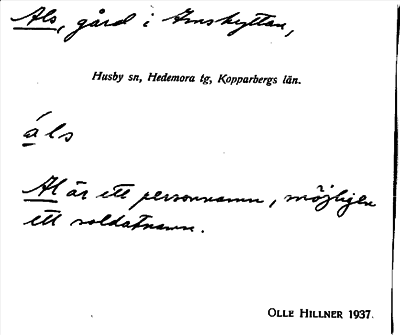 Als, gård i Smshyttan,
Husby sn, Hedemora tg, Kopparbergs län.
áls
Al är ett personnamn, möjligen
ett soldatnamn.
OLLE HILLNER 1937.